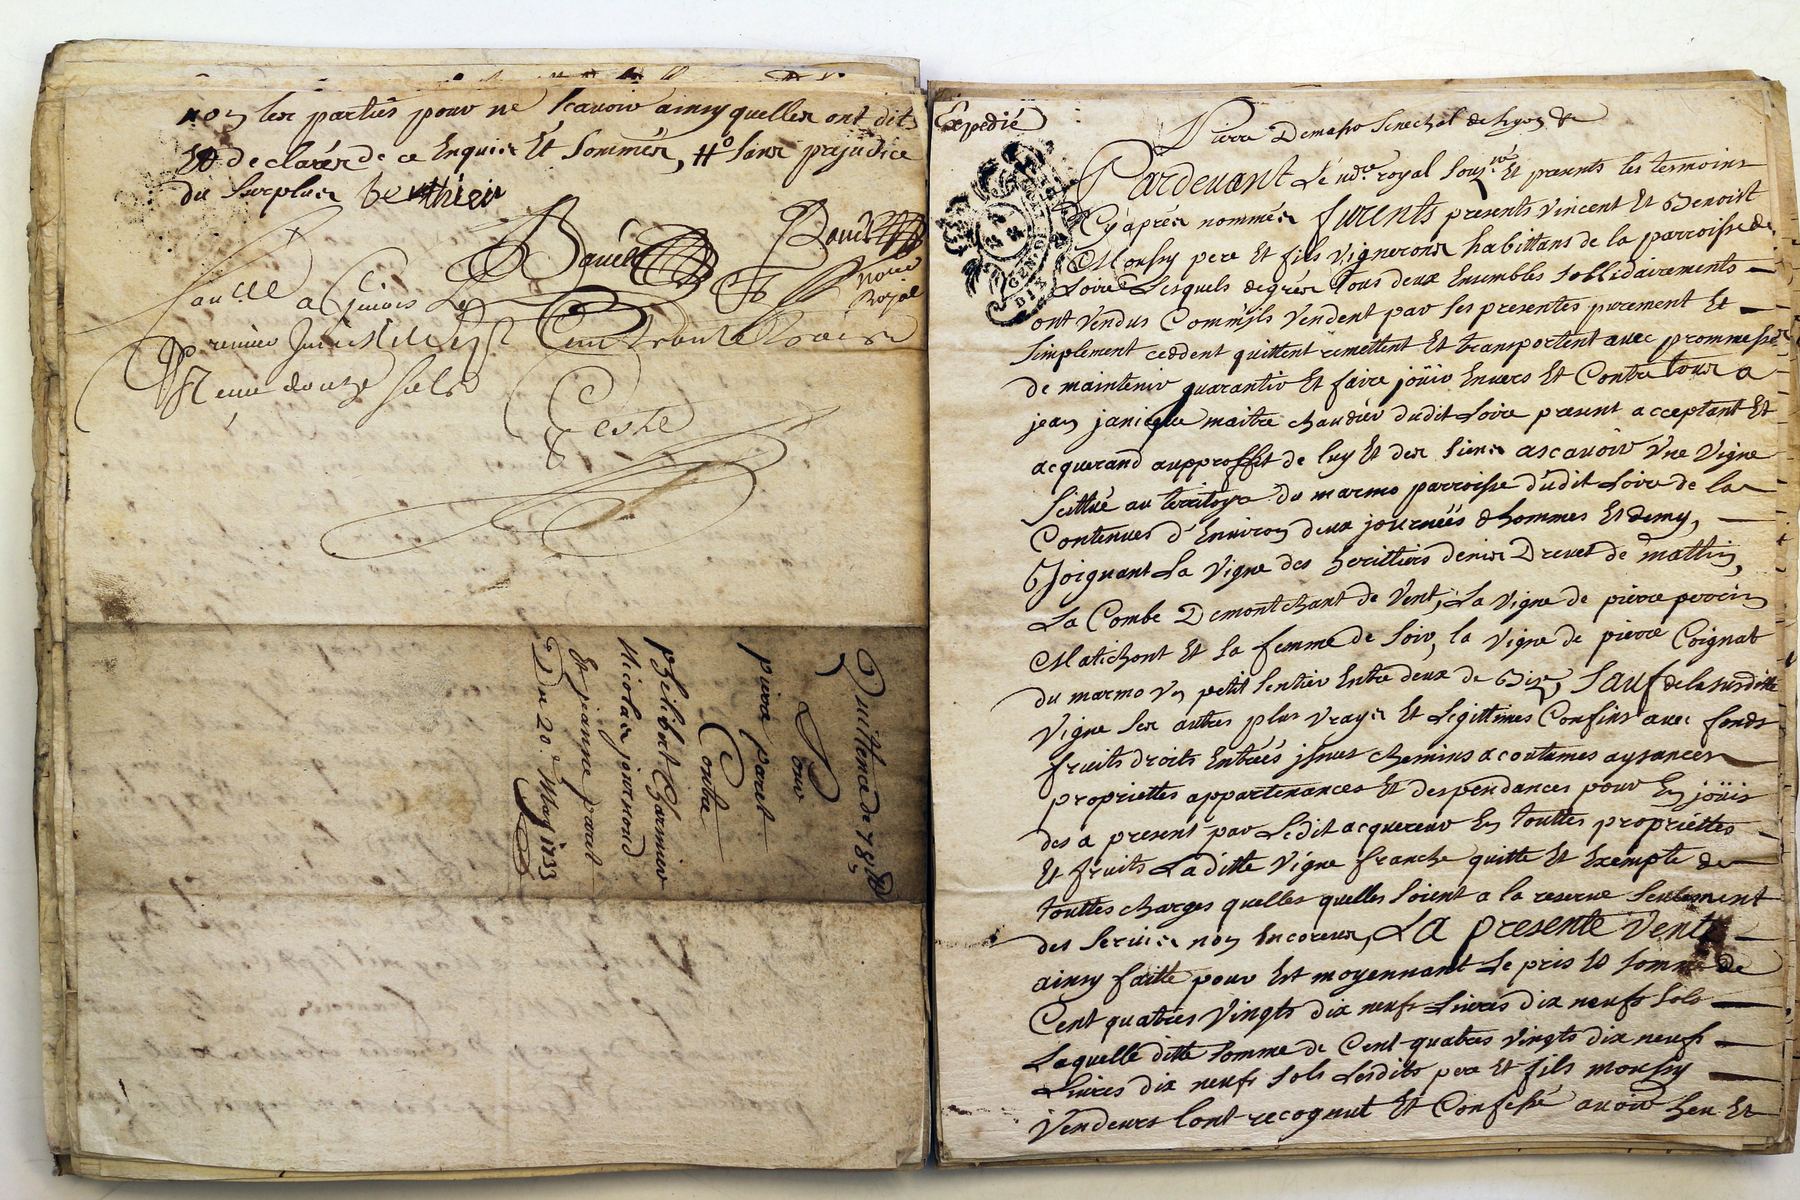 non les parties pour ne scavoir ainsy quelles ont dit
Et declarés de ce Enquis Et Sommés, sans prejudice
du surplus Berthier
Bauée Baud
nore
Royal
a Le
premier Cent trente trois
Reçu douze sols
Quittance de 78
Pour
pierre paret
Contre
philibert Garnier
Nicolas journoud
Et jeanne parat
Du 20 e May 1733
Expedié
GEN DIX
Pierre Demasso Senechal de Lyon &
Pardevant Le nore royal Souz né Et presents les temoins
Cy apres nommés furents presents Vincent Et Benoist
Moussy pere Et fils Vignerons habittans de la parroisse de
Loire Lesquels degrés tous deux Ensembles sollidairements
ont Vendus Comm'ils Vendent par Ses presentes purement Et
simplement ceddent quittent remettent Et transportent avec prommesse
de maintenir guarantir Et faire joüir Envers Et Contre tous a
jean janicque maitre chaudier dudit Loire present acceptant Et
acquerand aupproffit de luy Et des siens ascavoir Une Vigne
Scittué au territoyre du marmo parroisse dudit Loire de la
Contenues d'Environ deux journéés d'hommes Et demy,
Joignant La Vigne des heritiers denis Drevet de mattin,
La Combe Demontchant de Vent, La Vigne de pierre perrin
Matichont Et sa femme de soir, la Vigne de pierre Coignat
du marmo Un petit sentier Entre deux de Bize, Sauf de la susditte
Vigne ses autres plus Vrayes Et Legittimes Confins avec fonds
fruits droits Entréés issues chemins acoutumes aysances
propriettes appartenances Et despendances pour En joüir
des a present par Ledit acquereur En touttes propriéttes
Et fruits Laditte Vigne franche quitte Et Exempte de
touttes charges quelles quelles soient a la reserve seulement
des servis non Encoreus, La presente Vente
ainsy faitte pour Et moyennant Le pris Et somme de
Cent quatres Vingts dix neufs Livres dix neufs sols
Laquelle ditte somme de Cent quatres Vingts dix neufs
Livres dix neufs sols Lesdits pere Et fils moussy
Vendeurs Lont recognut Et Confessé avoir heu Et